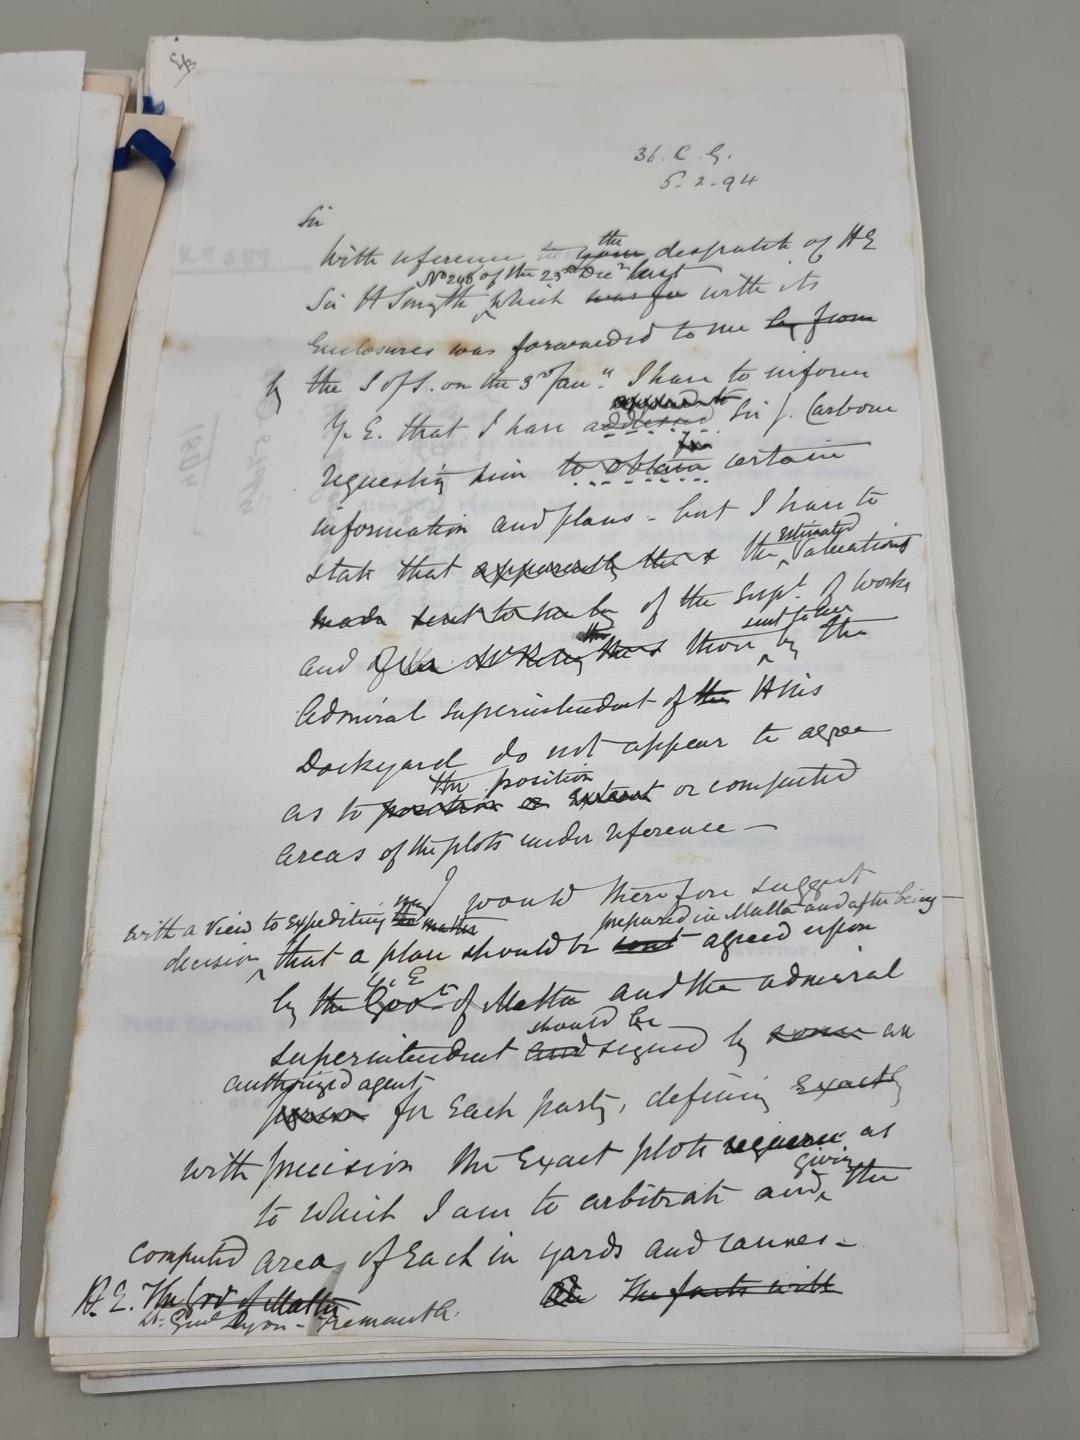 36. C. G.
5-2-94
Sir
With reference to your the despatch of HE
No 248 of the 23rd Decr last
Sir H Smyth, which was with its
Enclosures was forwarded to me by from
by the S of S. on the 3rd Jany. I have to inform
Y. E. that I have addressed Sir J. Carbone
requesting him to obtain for certain
information and plans - but I have to
estimated
state that apparently the the valuations
made sent to me by of the Supt. of Works
sent to her
and those by the
Admiral Superintendent of the HMs
Dockyard do not appear to agree
the position
as to position or extent or computed
areas of the plots under reference —
I would therefore suggest
with a view to Expediting my the matter prepared in Malta and after being
decision, that a plan should be sent agreed upon
Y. E
by the Govr. of Malta and the admiral
should be
superintendent and signed by some an
authorized agent
person for Each party, defining Exactly
with precision the Exact plots as
giving
to which I am to arbitrate and, the
computed area of Each in yards and cannes -
The facts will
H. E. The Gov of Malta
Lt. Genl Lyon - Fremantle.